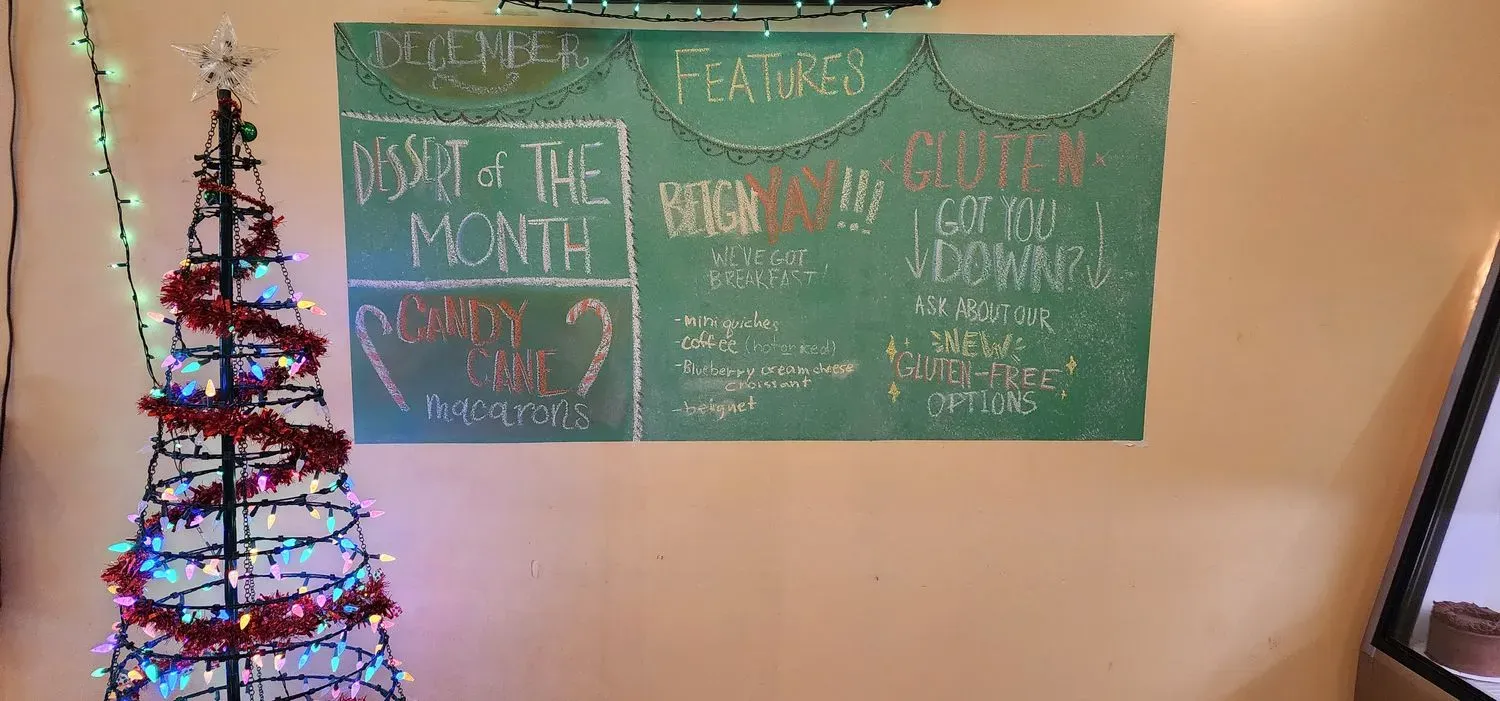 DECEMBER
FEATURES
DESSERT of THE
MONTH
CANDY
CANE
macarons
BEIGNYAY!!!
WE'VE GOT
BREAKFAST!
- mini quiches
- coffee (hot or iced)
- Blueberry cream cheese
croissant
- beignet
GLUTEN
GOT YOU
DOWN?
ASK ABOUT OUR
NEW
GLUTEN-FREE
OPTIONS